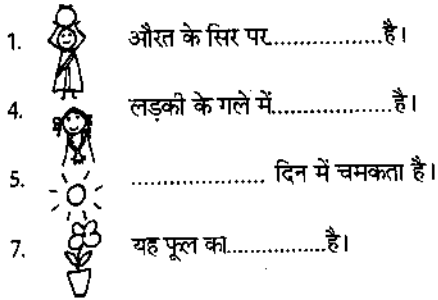 1. औरत के सिर पर..................है।
4. लड़की के गले में...................है।
5. ..................... दिन में चमकता है।
7. यह फूल का................है।